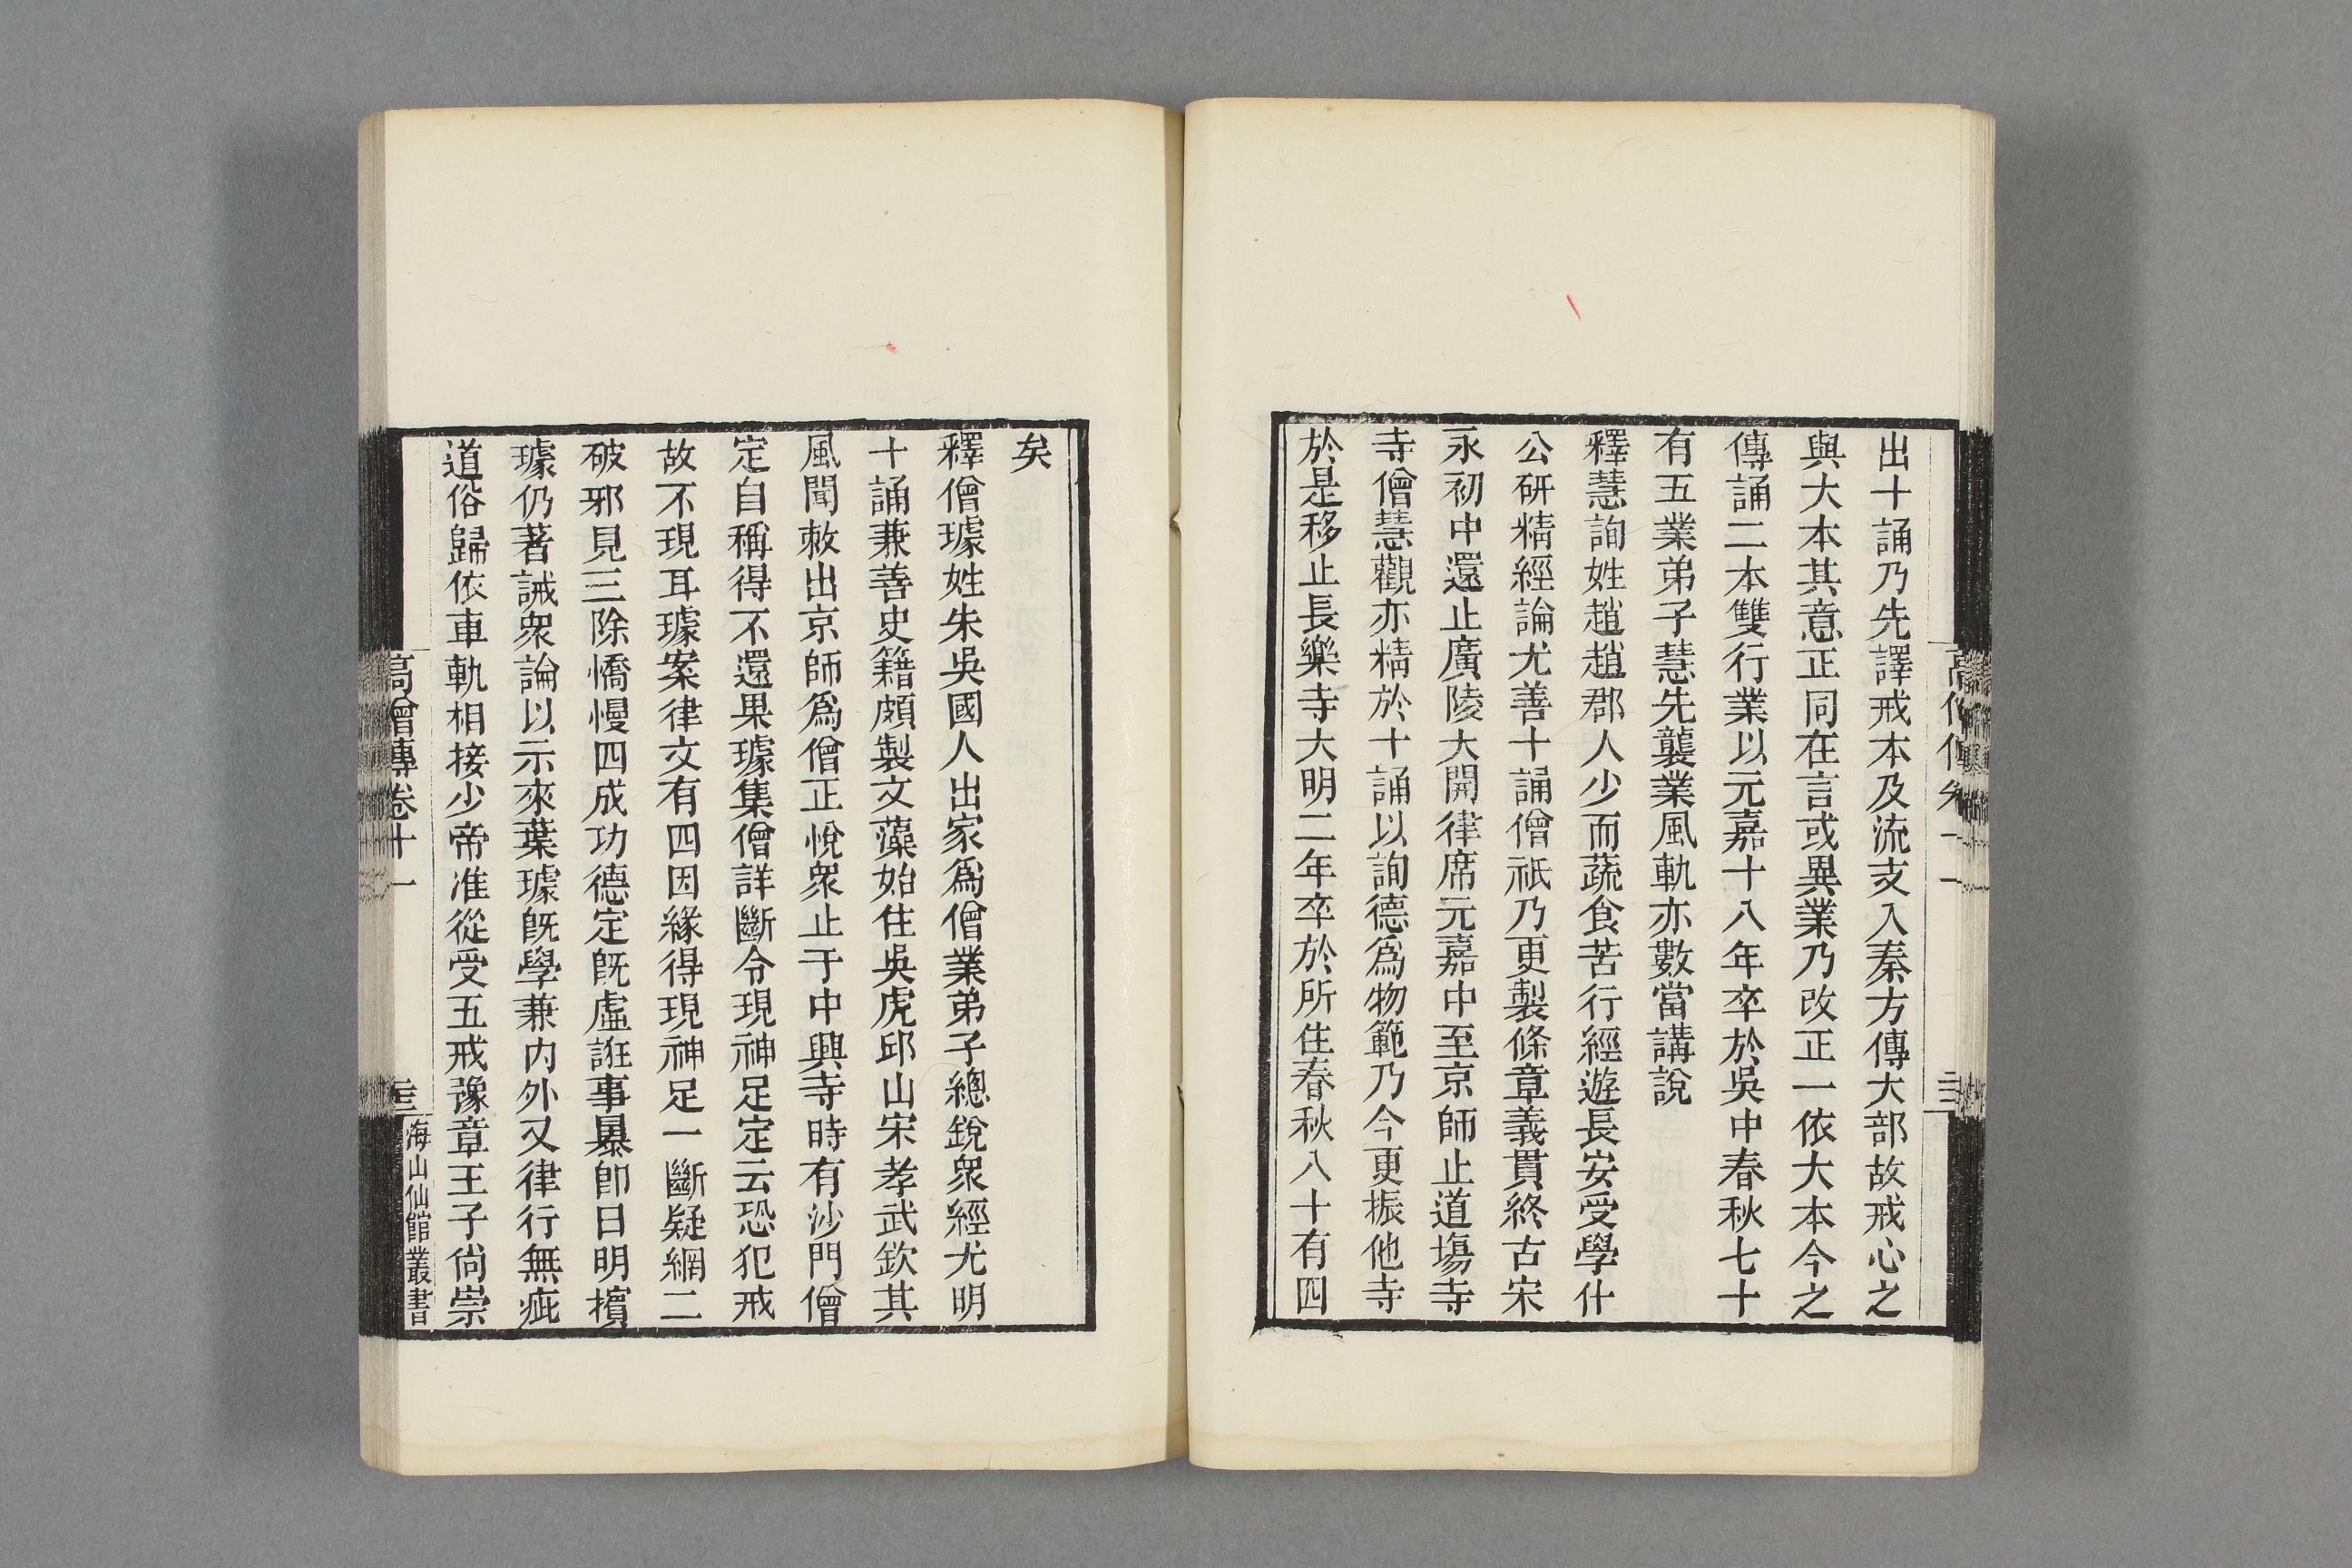 出十誦乃先譯戒本及流支入秦方傳大部故戒心之
與大本其意正同在言或異業乃改正一依大本今之
傳誦二本雙行業以元嘉十八年卒於吳中春秋七十
有五業弟子慧先襲業風軌亦數當講說
釋慧詢姓趙趙郡人少而蔬食苦行經遊長安受學什
公研精經論尤善十誦僧祇乃更製條章義貫終古宋
永初中還止廣陵大開律席元嘉中至京師止道場寺
寺僧慧觀亦精於十誦以詢德爲物範乃今更振他寺
於是移止長樂寺大明二年卒於所住春秋八十有四
矣
釋僧璩姓朱吳國人出家爲僧業弟子總銳衆經尤明
十誦兼善史籍頗製文藻始住吳虎邱山宋孝武欽其
風聞敕出京師爲僧正悅衆止于中興寺時有沙門僧
定自稱得不還果璩集僧詳斷令現神足定云恐犯戒
故不現耳璩案律文有四因緣得現神足一斷疑網二
破邪見三除憍慢四成功德定旣虛誑事暴卽日明擯
璩仍著誡衆論以示來葉璩旣學兼內外又律行無疵
道俗歸依車軌相接少帝准從受五戒豫章王子尙崇
高僧傳卷十一
海山仙館叢書